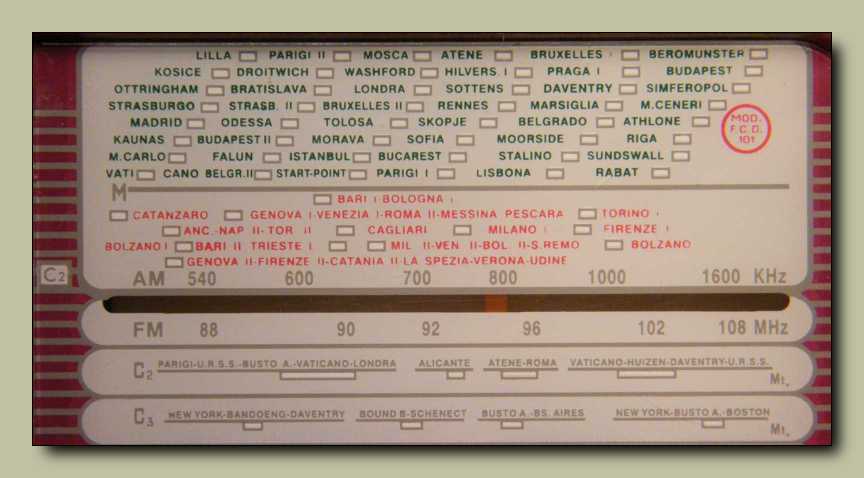 LILLA PARIGI II MOSCA ATENE BRUXELLES I BEROMUNSTER
KOSICE DROITWICH WASHFORD HILVERS. I PRAGA I BUDAPEST
OTTRINGHAM BRATISLAVA LONDRA SOTTENS DAVENTRY SIMFEROPOL
STRASBURGO STRASB. II BRUXELLES II RENNES MARSIGLIA M.CENERI
MADRID ODESSA TOLOSA SKOPJE BELGRADO ATHLONE
MOD.
F.C.D.
101
KAUNAS BUDAPEST II MORAVA SOFIA MOORSIDE RIGA
M.CARLO FALUN ISTANBUL BUCAREST STALINO SUNDSWALL
VATI CANO BELGR.II START-POINT PARIGI I LISBONA RABAT
M
BARI I-BOLOGNA I
CATANZARO GENOVA I-VENEZIA I-ROMA II-MESSINA PESCARA TORINO I
ANC.-NAP II-TOR II CAGLIARI MILANO I FIRENZE I
BOLZANO I BARI II TRIESTE I MIL II-VEN II-BOL II-S.REMO BOLZANO
GENOVA II-FIRENZE II-CATANIA II-LA SPEZIA-VERONA-UDINE
C2
AM 540 600 700 800 1000 1600 KHz
FM 88 90 92 96 102 108 MHz
C2 PARIGI-U.R.S.S.-BUSTO A.-VATICANO-LONDRA ALICANTE ATENE-ROMA VATICANO-HUIZEN-DAVENTRY-U.R.S.S.
Mt.
C3 NEW YORK-BANDOENG-DAVENTRY BOUND B-SCHENECT BUSTO A.-BS. AIRES NEW YORK-BUSTO A.-BOSTON
Mt.